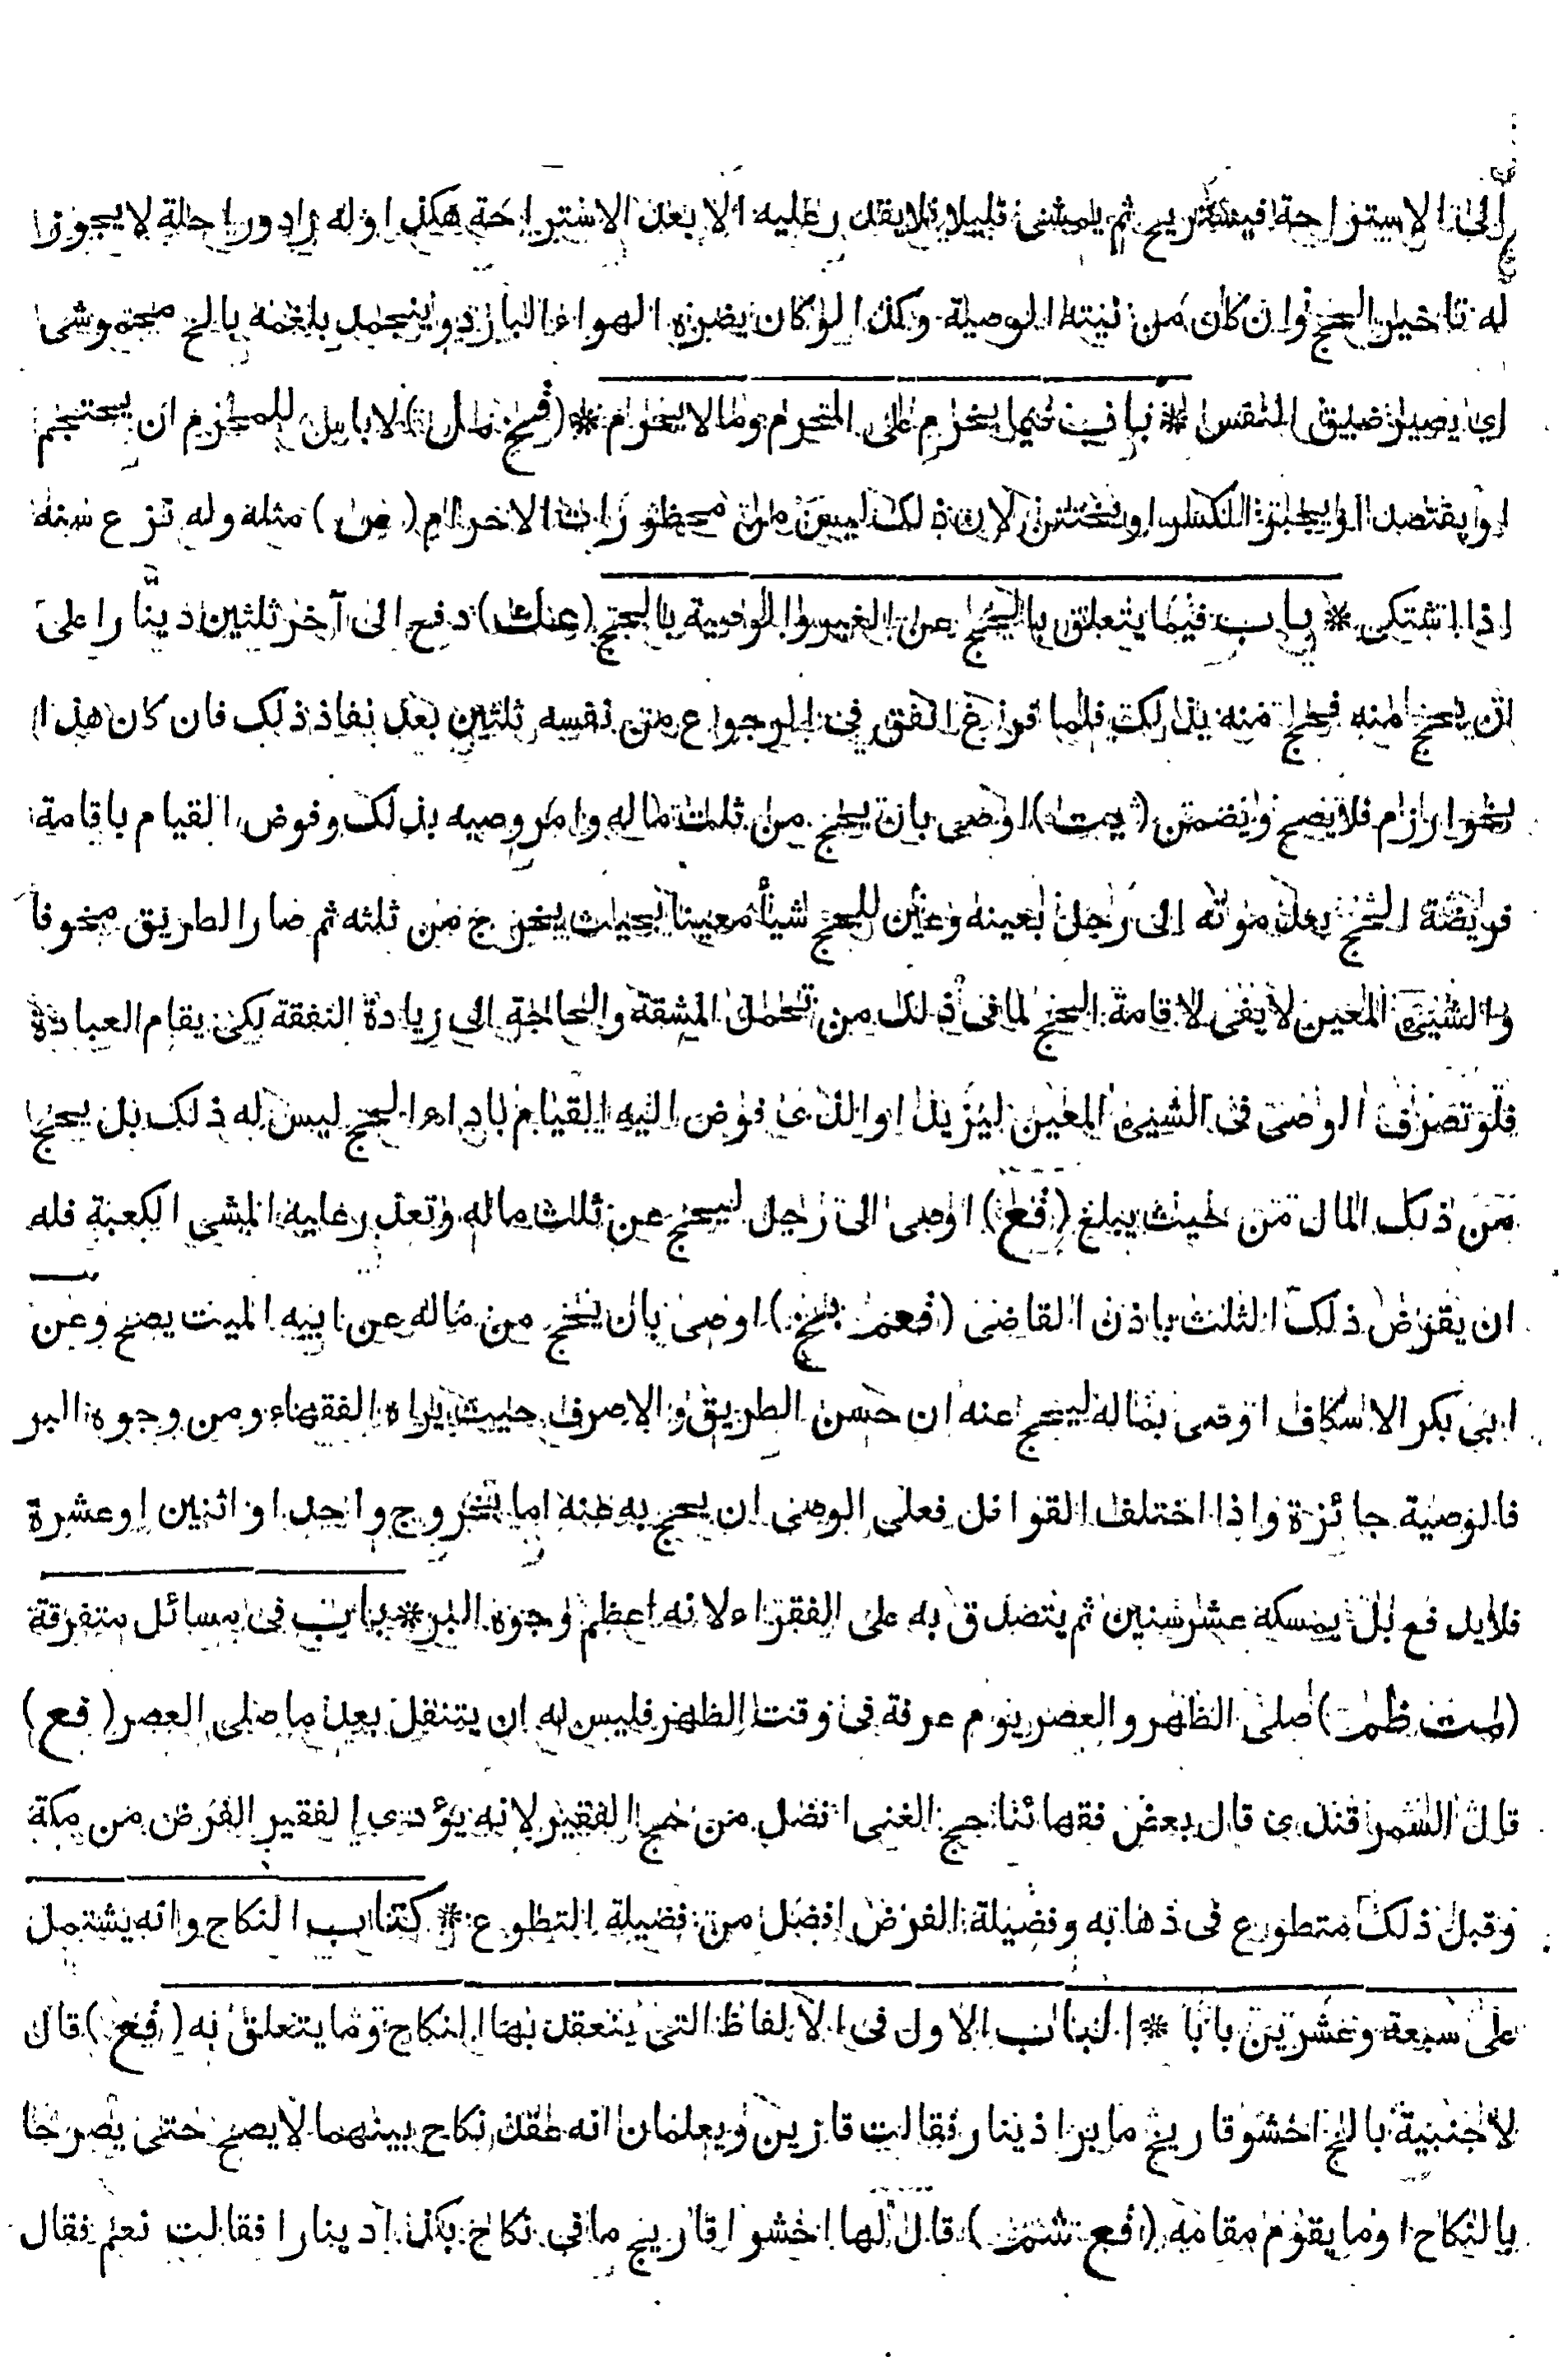 الى الاستراحة فيستريح ثم يمشى قليلا فلا يقدر عليه الا بعد الاستراحة هكذا وله زاد وراحلة لا يجوز
له تاخير الحج وان كان من نيته الوصية وكذا لو كان يضره الهواء البارد وينجمد بلغمه
اى يصير ضيق النفس * باب فيما يحرم على المحرم وما لا يحرم * لا باس للمحرم ان يحتجم
او يفتصد او يجبر الكسر او يختتن لان ذلك ليس من محظورات الاحرام (ص) مثله وله نزع سنه
اذا اشتكى * باب فيما يتعلق بالحج عن الغير والوصية بالحج (عك) دفع الى آخر ثلثين دينارا على
ان يحج منه فحج منه بذلك فلما فرغ انفق فى الرجوع من نفسه ثلثين بعد نفاذ ذلك فان كان هذا
بخوارزم فلا يصح ويضمن اوصى بان يحج من ثلث ماله وامر وصيه بذلك وفوض القيام باقامة
فريضة الحج بعد موته الى رجل بعينه وعين للحج شيأ معينا بحيث يخرج من ثلثه ثم صار الطريق مخوفا
والشىء المعين لا يفى لاقامة الحج لما فى ذلك من تحمل المشقة والحاجة الى زيادة النفقة لكى يقام العبادة
فلو تصرف الوصى فى الشىء المعين ليزيد او الذى فوض اليه القيام باداء الحج ليس له ذلك بل يحج
من ذلك المال من حيث يبلغ (فع) اوصى الى رجل ليحج عن ثلث ماله وتعذر عليه المشى الكعبة فله
ان يقرض ذلك الثلث باذن القاضى (فعم بخ) اوصى بان يحج من ماله عن ابيه الميت يصح وعن
ابى بكر الاسكاف اوصى بماله ليحج عنه ان حسن الطريق والا صرف حيث يراه الفقهاء ومن وجوه البر
فالوصية جائزة واذا اختلف القوافل فعلى الوصى ان يحج به عنه اما بخروج واحد او اثنين او عشرة
فلا يدفع بل يمسكه عشر سنين ثم يتصدق به على الفقراء لانه اعظم وجوه البر * باب فى مسائل متفرقة
صلى الظهر والعصر يوم عرفة فى وقت الظهر فليس له ان يتنفل بعد ما صلى العصر (فع)
قال السمرقندى قال بعض فقهائنا حج الغنى افضل من حج الفقير لانه يؤدى الفقير الفرض من مكة
وقبل ذلك متطوع فى ذهابه وفضيلة الفرض افضل من فضيلة التطوع * كتاب النكاح وانه يشتمل
على سبعة وعشرين بابا * الباب الاول فى الالفاظ التى ينعقد بها النكاح وما يتعلق به (فع) قال
لاجنبية دينار فقالت ويعلمان انه عقد نكاح بينهما لا يصح حتى يصرحا
بالنكاح او ما يقوم مقامه قال لها نكاح بكذا دينارا فقالت نعم فقال